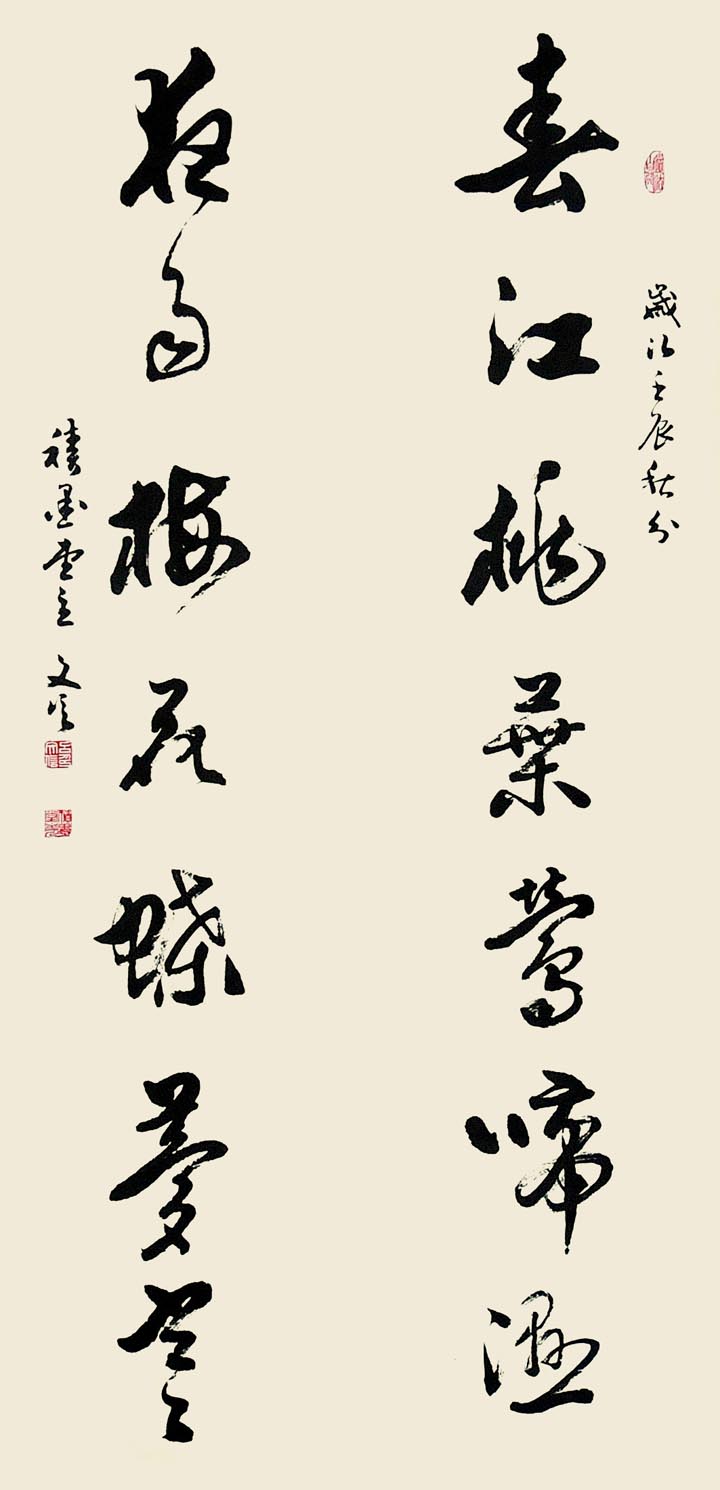 歲次壬辰秋分
春江桃葉鶯啼濕
夜雨梅花蝶夢寒
墨堂主 文